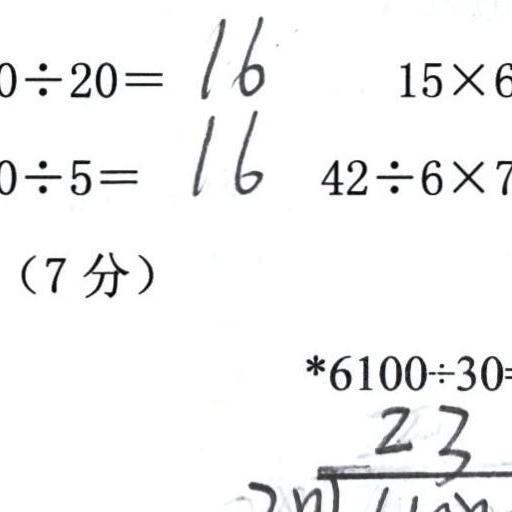 0÷20= 16 15×6
0÷5= 16 42÷6×7
（7 分）
*6100÷30=
23